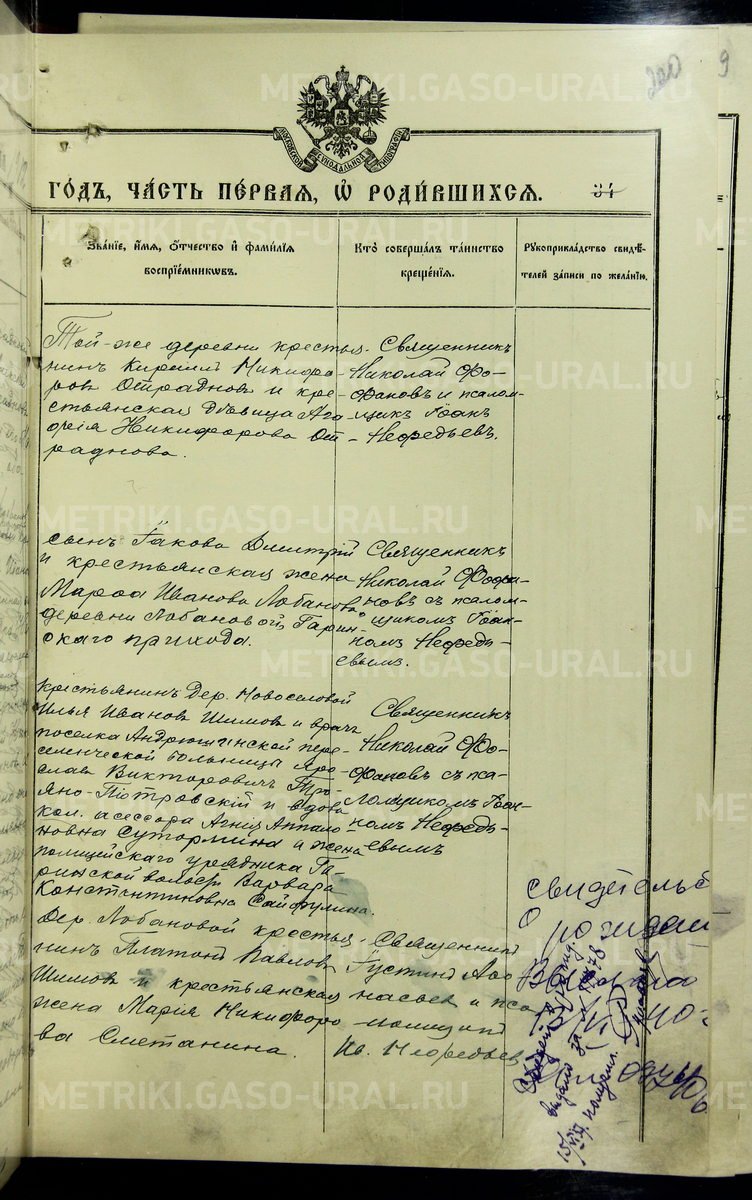 200
9
МОСКОВСКОЙ СѴНОДАЛЬНОЙ ТИПОГРАФІИ
ГО́ДЪ, ЧА́СТЬ ПЕ́РВАЯ, Ѡ҆ РОДИ́ВШИХСЯ.
34
Зва́ніе, и҆́мя, ѻ҆́тчество и҆ фами́лія
воспріе́мниковъ.
Кто̀ соверша́лъ та́инство
креще́нія.
Рꙋкоприкла́дство свидѣ́-
телей за́писи по жела́нію.
Той-же деревни крестья-
нинъ Кирилъ Никифо-
ровъ Отрадновъ и кре-
стьянская дѣвица Ага-
фія Никифорова От-
раднова.
Священникъ
Николай Фо-
фановъ и псалом-
щикъ Іоакъ
Нефедьевъ.
сынъ Іаковъ Дмитрій
и крестьянская жена
Марѳа Иванова Лобанова
деревни Лобановой, Гарин-
скаго прихода.
Священникъ
Николай Фофа-
новъ съ псалом-
щикомъ Іоак-
комъ Нефедь-
евымъ.
Крестьянинъ Дер. Новоселовой
Илья Ивановъ Шимовъ и врачъ
поселка Андрюшинской пере-
селенческой больницы Яро-
славъ Викторовичъ Тро-
яно-Піотровскій и вдова
кол. ассесора Агнія Аполло-
новна Сутормина и жена
полицейскаго урядника Га-
ринской волости Варвара
Константиновна Сайфулина.
Священникъ
Николай Фо-
фановъ съ пса-
ломщикомъ Іоак-
комъ Нефедь-
евымъ
Дер. Лобановой крестья-
нинъ Платонъ Павловъ
Шимовъ и крестьянская
жена Марія Никифоро-
ва Сметанина.
Священникъ
Іустинъ Афо
насьев и пса
ломщикъ
Ив. Нефедьев
свидетельс
О рождении
выдано за №